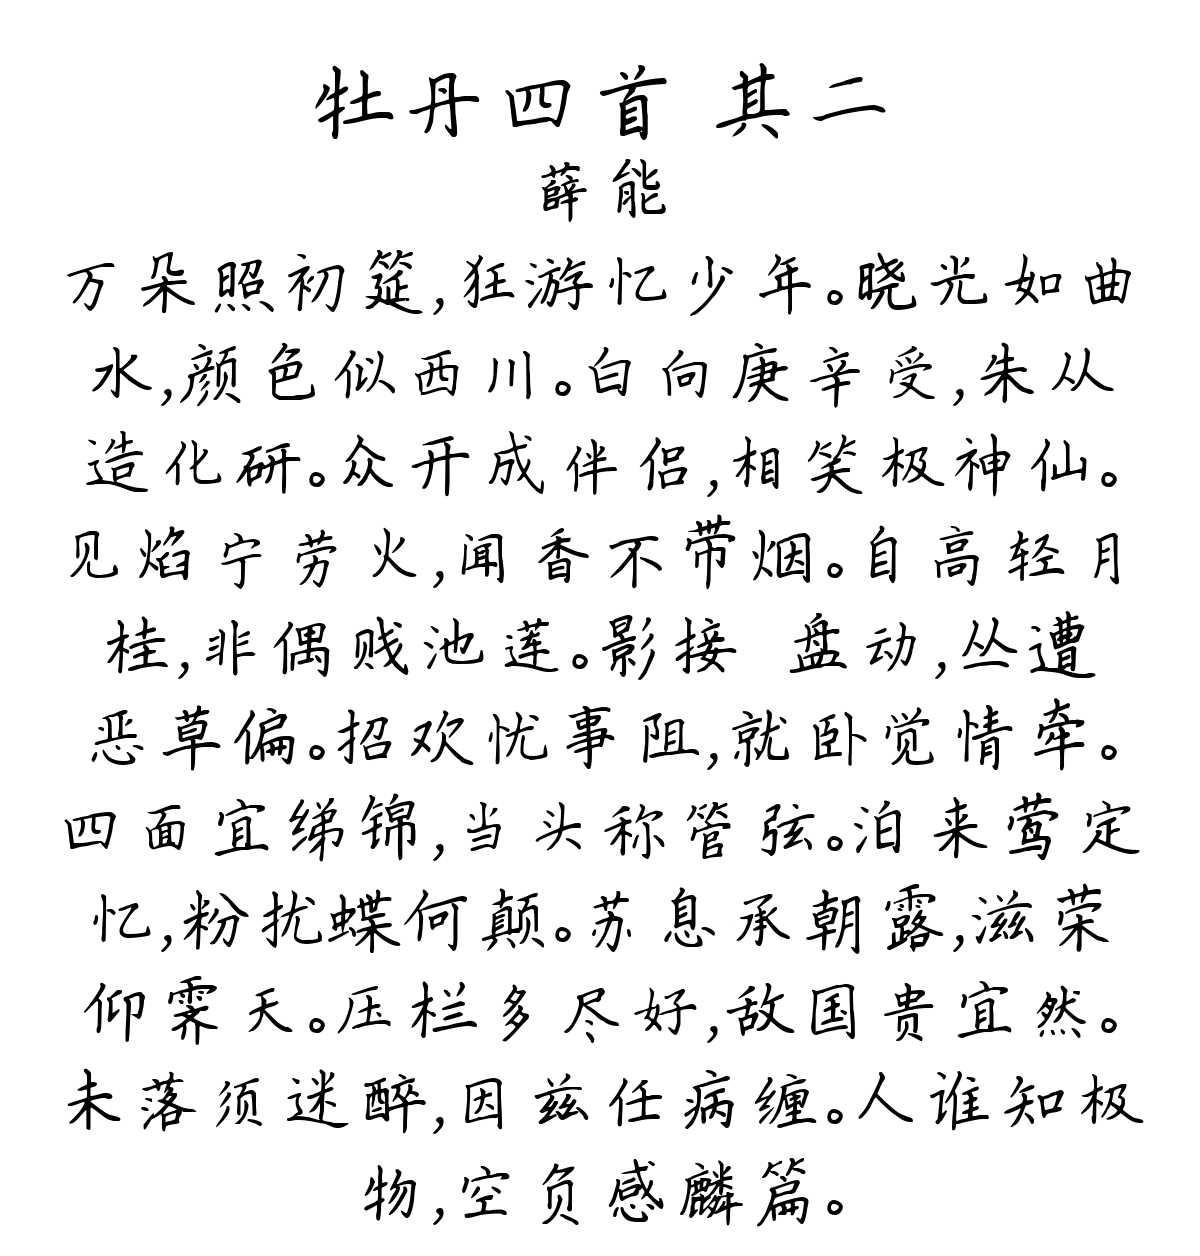 牡丹四首 其二
薛能
万朵照初筵,狂游忆少年。晓光如曲
水,颜色似西川。白向庚辛受,朱从
造化研。众开成伴侣,相笑极神仙。
见焰宁劳火,闻香不带烟。自高轻月
桂,非偶贱池莲。影接 盘动,丛遭
恶草偏。招欢忧事阻,就卧觉情牵。
四面宜绨锦,当头称管弦。泊来莺定
忆,粉扰蝶何颠。苏息承朝露,滋荣
仰霁天。压栏多尽好,敌国贵宜然。
未落须迷醉,因兹任病缠。人谁知极
物,空负感麟篇。